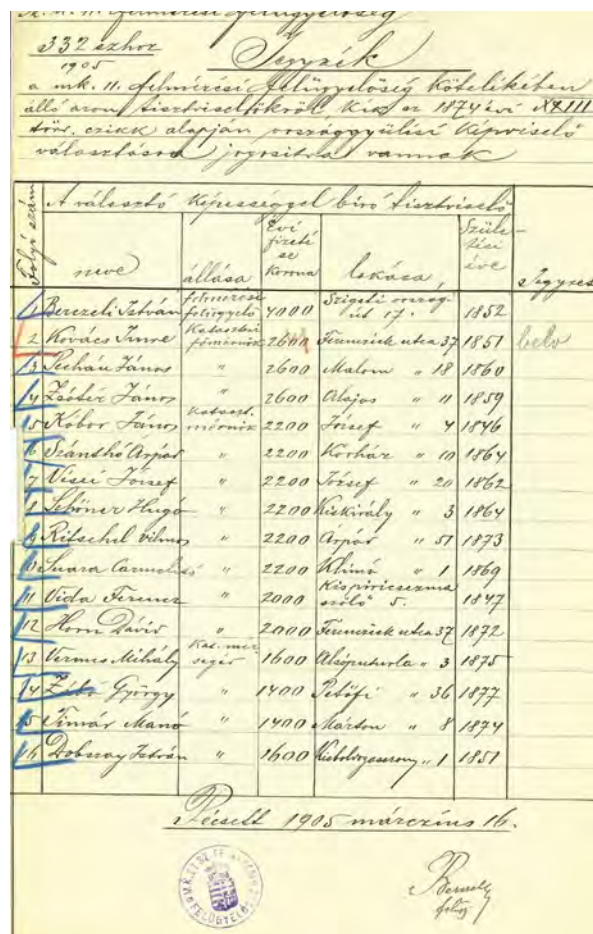 M. k. II. felmérési felügyelőség
332 szhoz
1905
Jegyzék
a mk. II. felmérési felügyelőség kötelékében
álló azon tisztviselőkről kik az 1874 évi XXXIII
törv. czikk alapján országgyűlési képviselő
választásra jogosítva vannak
Folyó szám
A választó képességgel bíró tisztviselő
neve
állása
Évi fizetése Korona
lakása,
Születési éve
Jegyzet
1 Berezeli István felmérési felügyelő 4000 Szigeti országút 17. 1852
2 Kovács Imre Kataszteri főmérnök 2600 Ferencziek utcza 37 1851
3 Pechán János " 2600 Malom " 18 1860
4 Zsótér János " 2600 Alajos " 11 1859
5 Kóbor János Kataszt. mérnök 2200 József " 4 1846
6 Szánthó Árpád " 2200 Kórház " 10 1864
7 Vései József " 2200 József " 20 1862
8 Schöner Hugó " 2200 Kiskirály " 3 1864
9 Ritschel Vilmos " 2200 Árpád " 51 1873
10 Suara " 2200 Klimó " 1 1869
11 Vida Ferencz " 2000 szőlő 5. 1847
12 Horn Dávid " 2000 Ferencziek utcza 37 1872
13 Vermes Mihály Kat. mér. segéd 1600 " 3 1875
14 György " 1400 Petőfi " 36 1877
15 Timár Manó " 1400 Márton " 8 1874
16 Dobszay István " 1600 " 1 1851
Pécsett 1905 márczius 16.